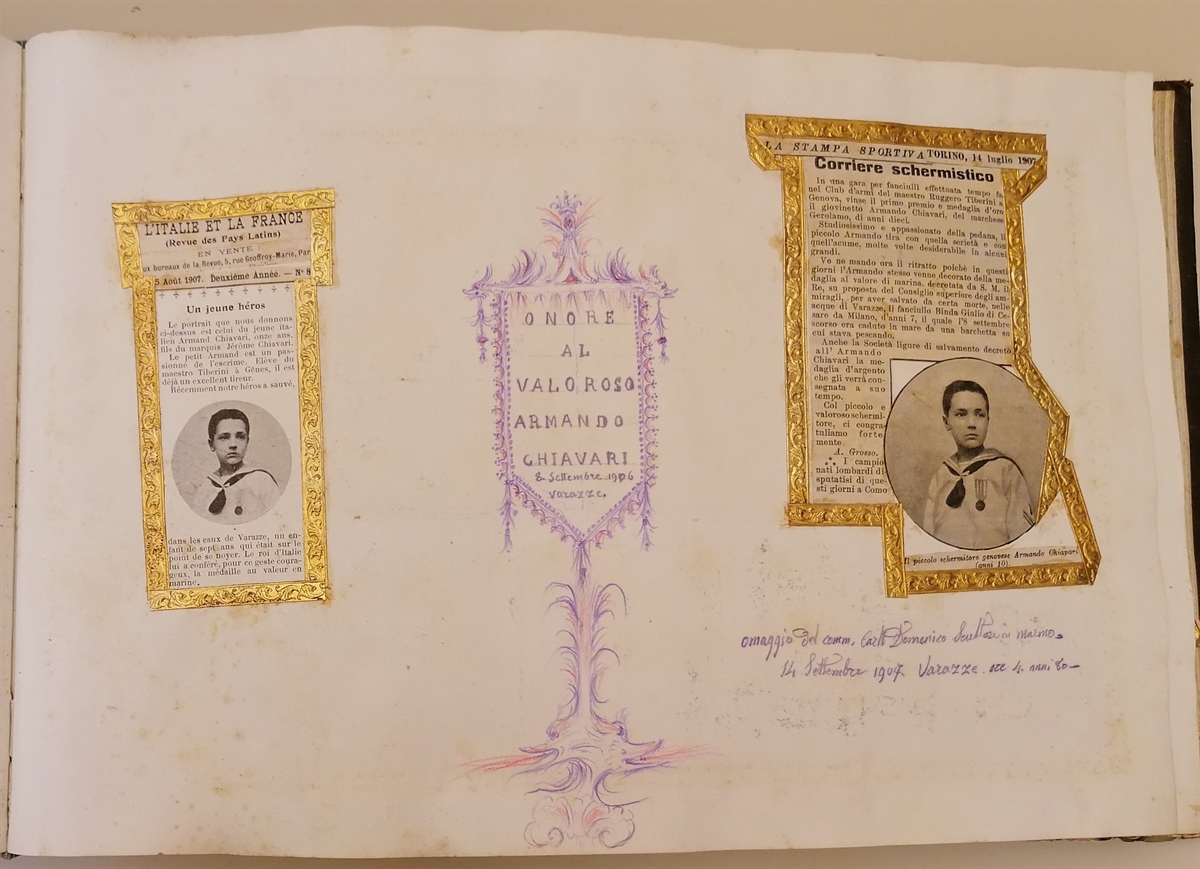 L'ITALIE ET LA FRANCE
(Revue des Pays Latins)
EN VENTE :
ux bureaux de la Revue, 5, rue Geoffroy-Marie, Par
5 Août 1907. Deuxième Année. — N° 8
Un jeune héros
Le portrait que nous donnons
ci-dessus est celui du jeune ita-
lien Armand Chiavari, onze ans,
fils du marquis Jérôme Chiavari.
Le petit Armand est un pas-
sionné de l'escrime. Elève du
maestro Tiberini à Gênes, il est
déjà un excellent tireur.
Récemment notre héros a sauvé,
dans les eaux de Varazze, un en-
fant de sept ans qui était sur le
point de se noyer. Le roi d'Italie
lui a conféré, pour ce geste coura-
geux, la médaille au valeur en
marine.
ONORE
AL
VALOROSO
ARMANDO
CHIAVARI
8 Settembre 1906
Varazze.
LA STAMPA SPORTIVA TORINO, 14 luglio 1907
Corriere schermistico
In una gara per fanciulli effettuata tempo fa
nel Club d'armi del maestro Ruggero Tiberini a
Genova, vinse il primo premio e medaglia d'oro
il giovinetto Armando Chiavari, del marchese
Gerolamo, di anni dieci.
Studiosissimo e appassionato della pedana, il
piccolo Armando tira con quella serietà e con
quell'acume, molte volte desiderabile in alcuni
grandi.
Ve ne mando ora il ritratto poichè in questi
giorni l'Armando stesso venne decorato della me-
daglia al valore di marina, decretata da S. M. il
Re, su proposta del Consiglio superiore degli am-
miragli, per aver salvato da certa morte, nelle
acque di Varazze, il fanciullo Binda Giulio di Ce-
sare da Milano, d'anni 7, il quale l'8 settembre
scorso era caduto in mare da una barchetta su
cui stava pescando.
Anche la Società ligure di salvamento decretò
all' Armando
Chiavari la me-
daglia d'argento
che gli verrà con-
segnata a suo
tempo.
Col piccolo e
valoroso schermi-
tore, ci congra-
tuliamo forte-
mente.
A. Grosso.
⁂ I campio
nati lombardi di
sputatisi di que-
sti giorni a Como
Il piccolo schermitore genovese Armando Chiavari
(anni 10).
omaggio del comm. Domenico
14 Settembre 1907. Varazze. 4. anni 80 —